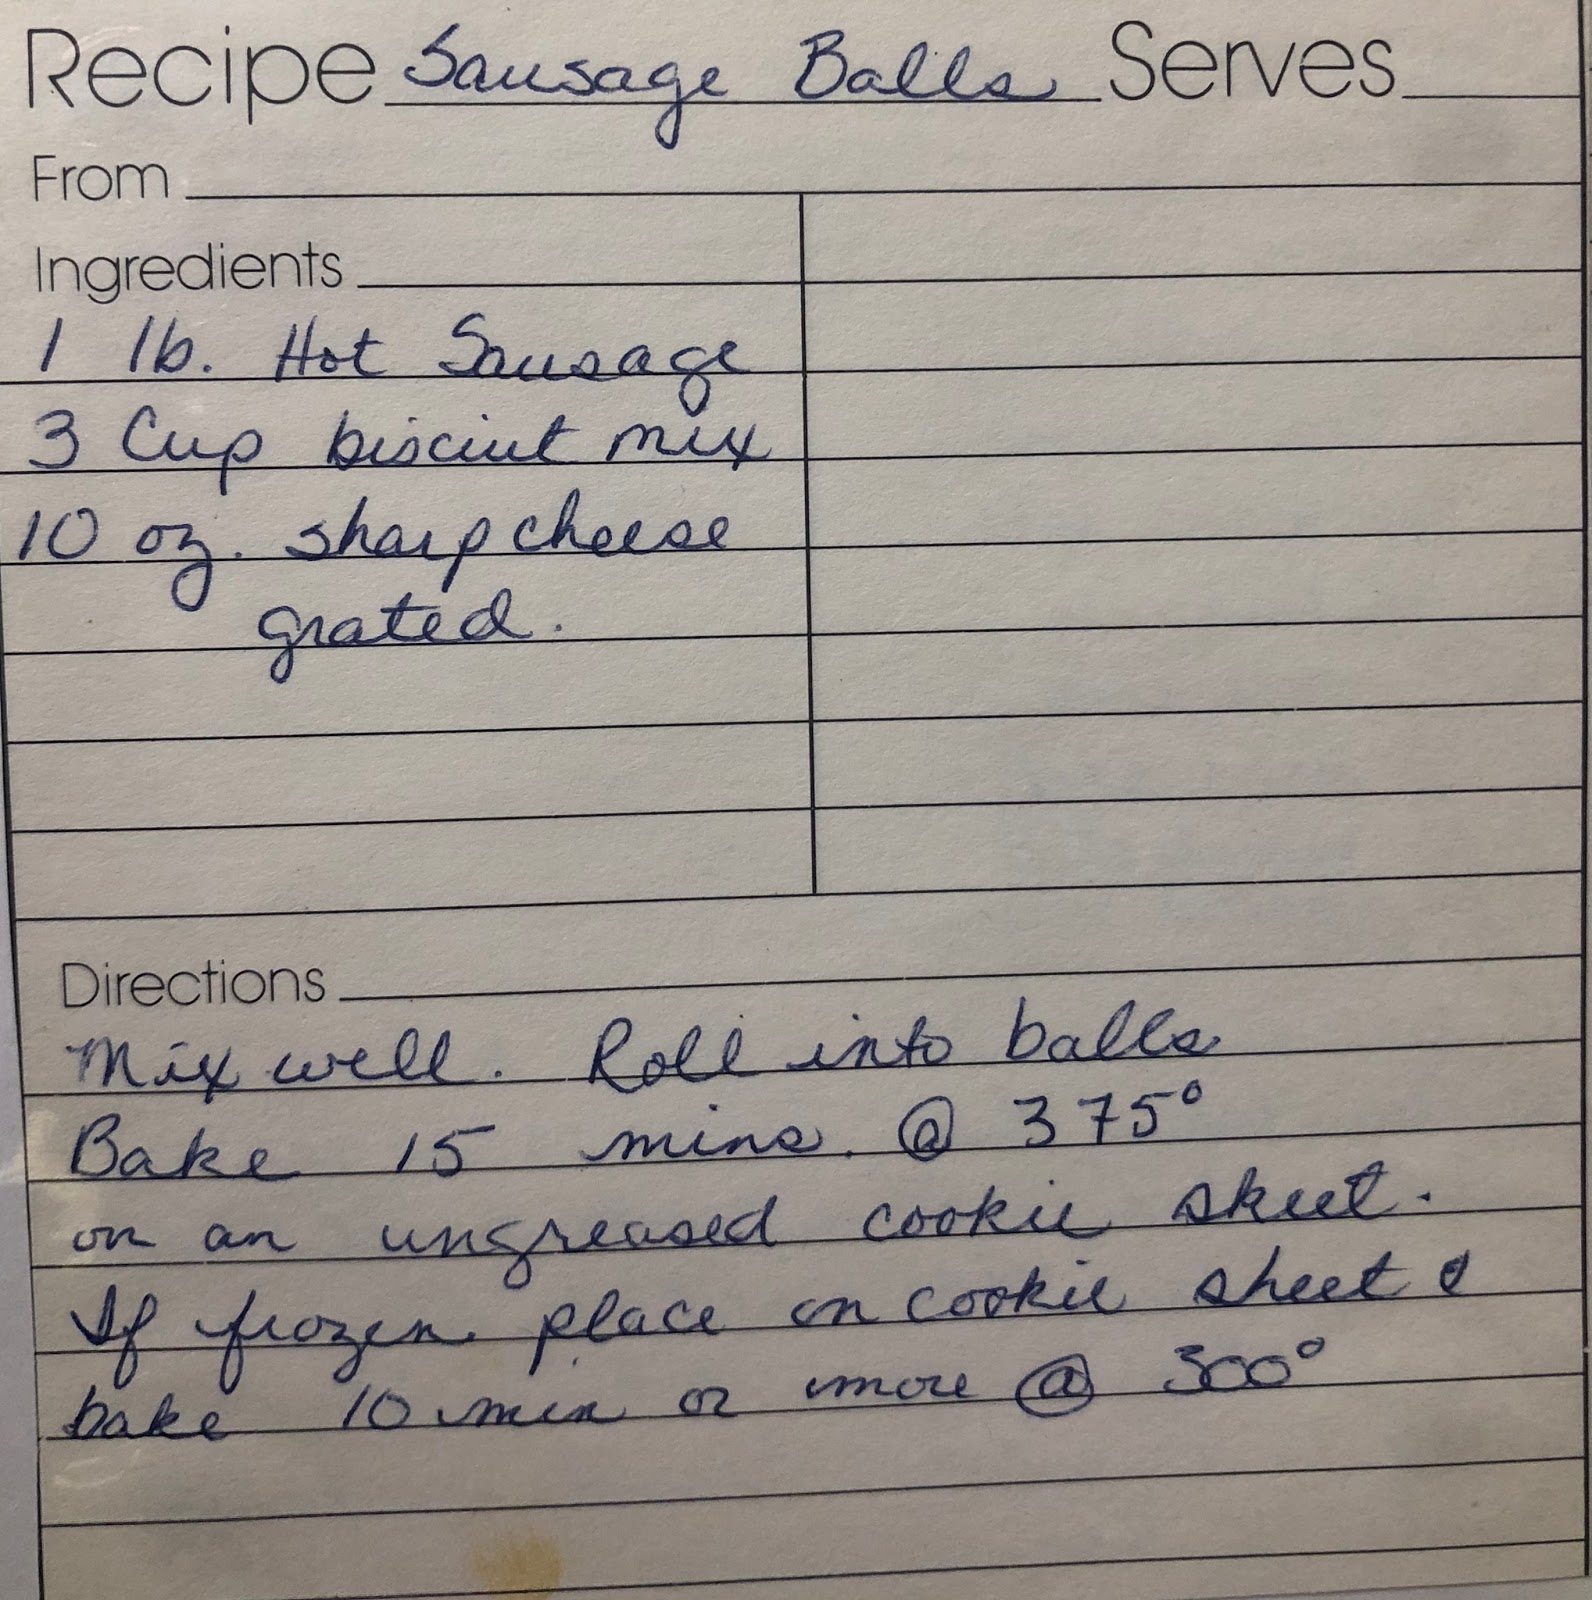 Recipe Sausage Balls Serves
From
Ingredients
1 lb. Hot Sausage
3 Cup bisciut mix
10 oz. sharp cheese
grated.
Directions
Mix well. Roll into balls
Bake 15 mins. @ 375°
on an ungreased cookie sheet.
If frozen place on cookie sheet &
bake 10 min or more @ 300°